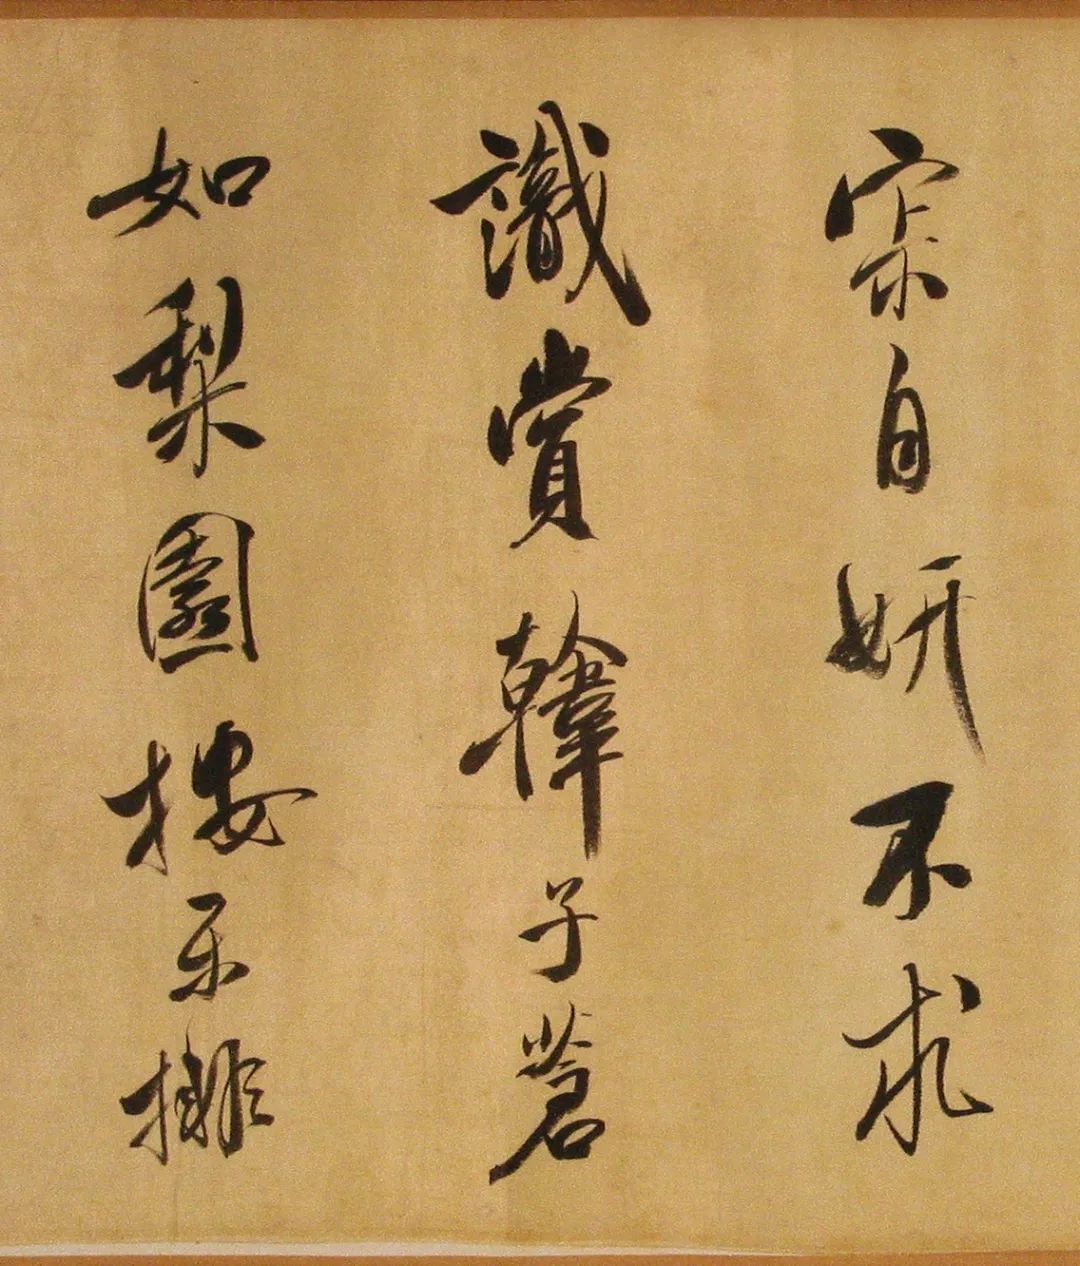 寂自妍不求
識賞韓子蒼
如梨園按樂排